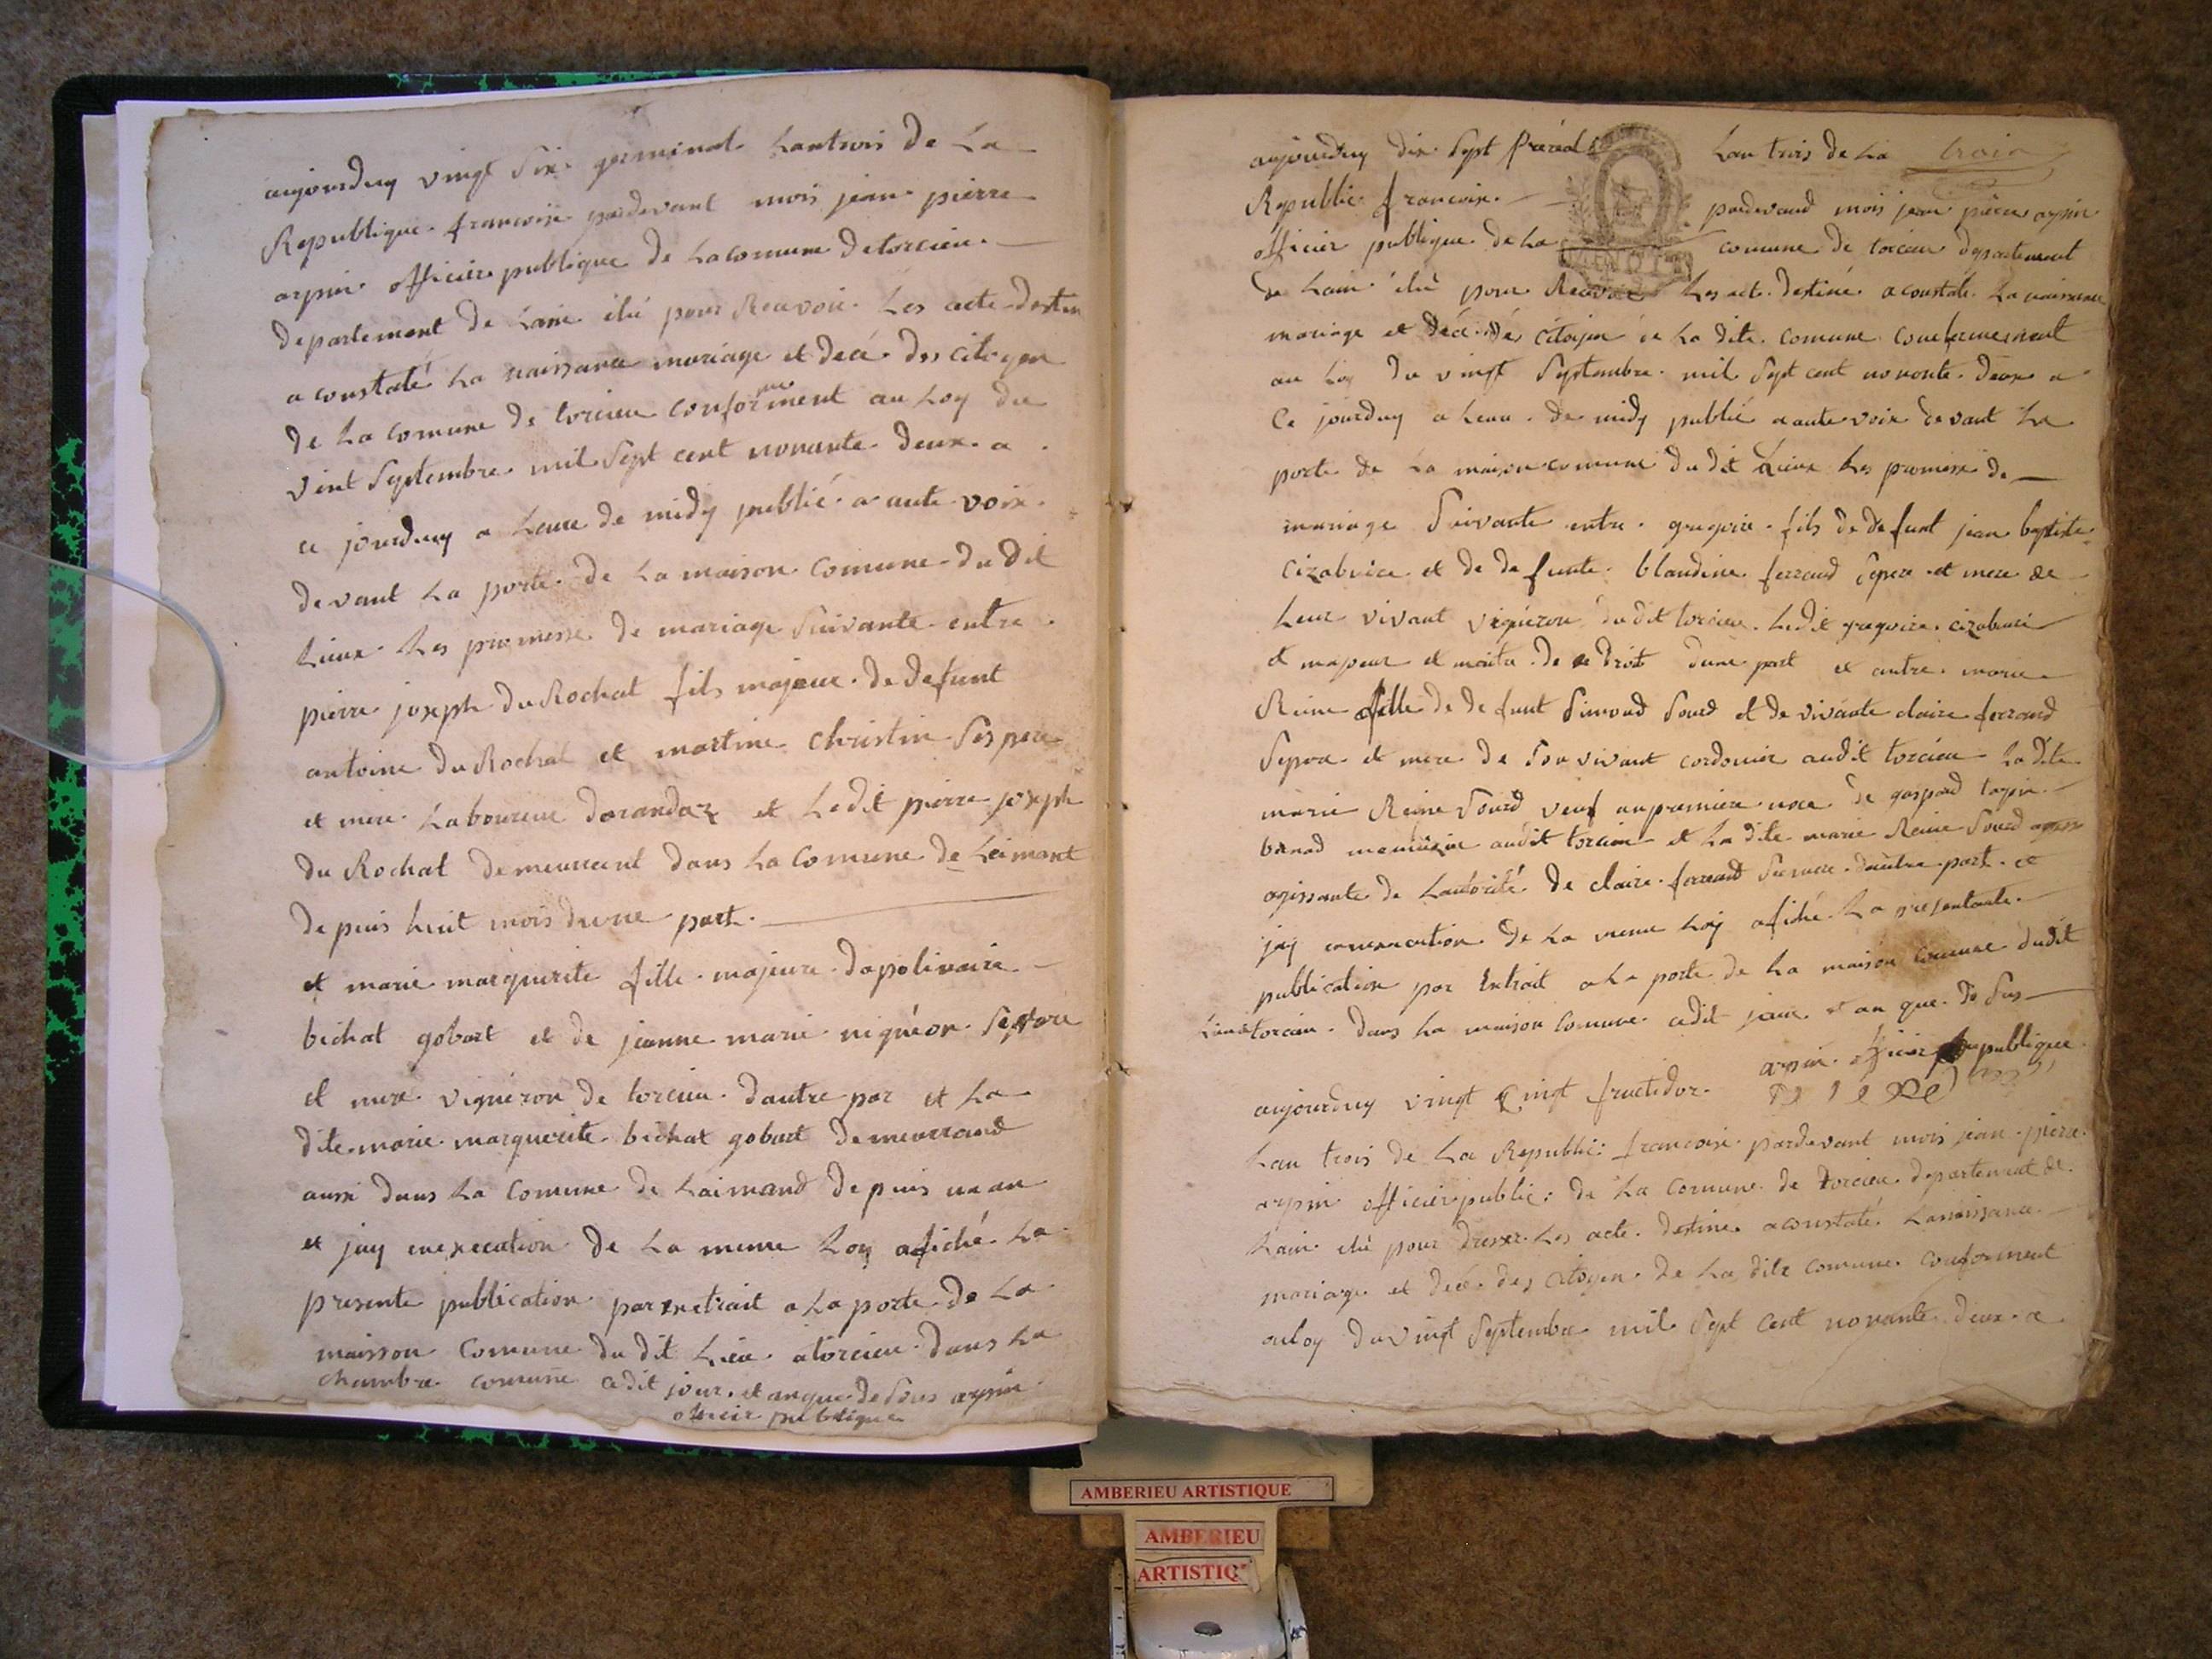 aujourduy vingt Six germinal Lantrois de La
Republique francoise pardevant mois jean pierre
arpin officier publique de Lacomune detorcieu
departement de Lain élu pour Recevoir Les acte destin
a constaté La naissance mariage et decé des Citoyen
de La Comune de torcieu conformement au Loy du
vint Septembre mil Sept cent nonante deux a
ce jourduy a heure de midy publié a aute voix
devant La porte de La maison Comune du dit
Lieux Les promesse de mariage Suivante entre
pierre joseph du Rochat fils majeur de defunt
antoine du Rochat et martine christin Ses pere
et mere Laboureur darandaz et Ledit pierre joseph
du Rochat demeurant dans La Comune de Leimant
depuis huit mois dune part
et marie marguerite fille majeure dapolinaire
bichat gobart et de jeanne marie niguéon Sepere
et mere vigneron de torcieu dautre par et La
dite marie marguerite bichat gobart demeurrand
aussi dans La Comune de Laimand depuis un an
et jay enexecation de La meme Loy afiché La
presente publication parextrait a La porte de La
maisson Comune du dit Lieu atorcieu dans La
chambre comune cedit jour et anque de Sus arpin
officier publique
aujourduy dix Sept prerial Lan trois de La trois
Republic francoise pardevand mois jean pierre arpin
officier publique de La comune de torcieu departement
de Lain élu pour Recevoir Les acte destiné a constaté La naissance
mariage et décé dés Citoyen de La dite Comune conformement
au Loy du vingt Septembre mil Sept cent nonante deux a
Ce jourduy a heure de midy publié a aute voix devant La
porte de La maison comune du dit Lieux Les promesse de
mariage Suivante entre gregoire fils de defunt jean baptiste
Cizabuice et de defunte blandine ferrand Sepere et mere de
Leur vivant vigneron du dit torcieu Ledit gregoire cizabuice
et majeur et maitre de se droit dune part et autre marie
Reine fille de defunt Simond Soud et de vivante claire ferrand
Sepere et mere de Son vivant cordonier audit torcieu La dite
marie Reine Soud veuf anpremiere noce de gaspard
audit torcieu et La dite marie Reine Soud
agissante de Lautorité de claire ferrand Samere dautre part et
jay enexecution de La meme Loy afiché La presentante
publication par Extrait a La porte de La maison Comune dudit
Lieu a torcieu dans La maison Comune cedit jour et an que de Sus
arpin officier publique
aujourduy vingt Cinqt fructidor
Lan trois de La Republic: francoise pardevant mois jean piere
arpin officier public: de La Comune de torcieu departement de
Lain élu pour dresser Les acte destine a constaté Lanaissance
mariage et decé des Citoyen de La dite Comune conforment
auloy du vingt Septembre mil Sept Cent nonante deux a
AMBERIEU ARTISTIQUE
AMBERIEU
ARTISTIQ